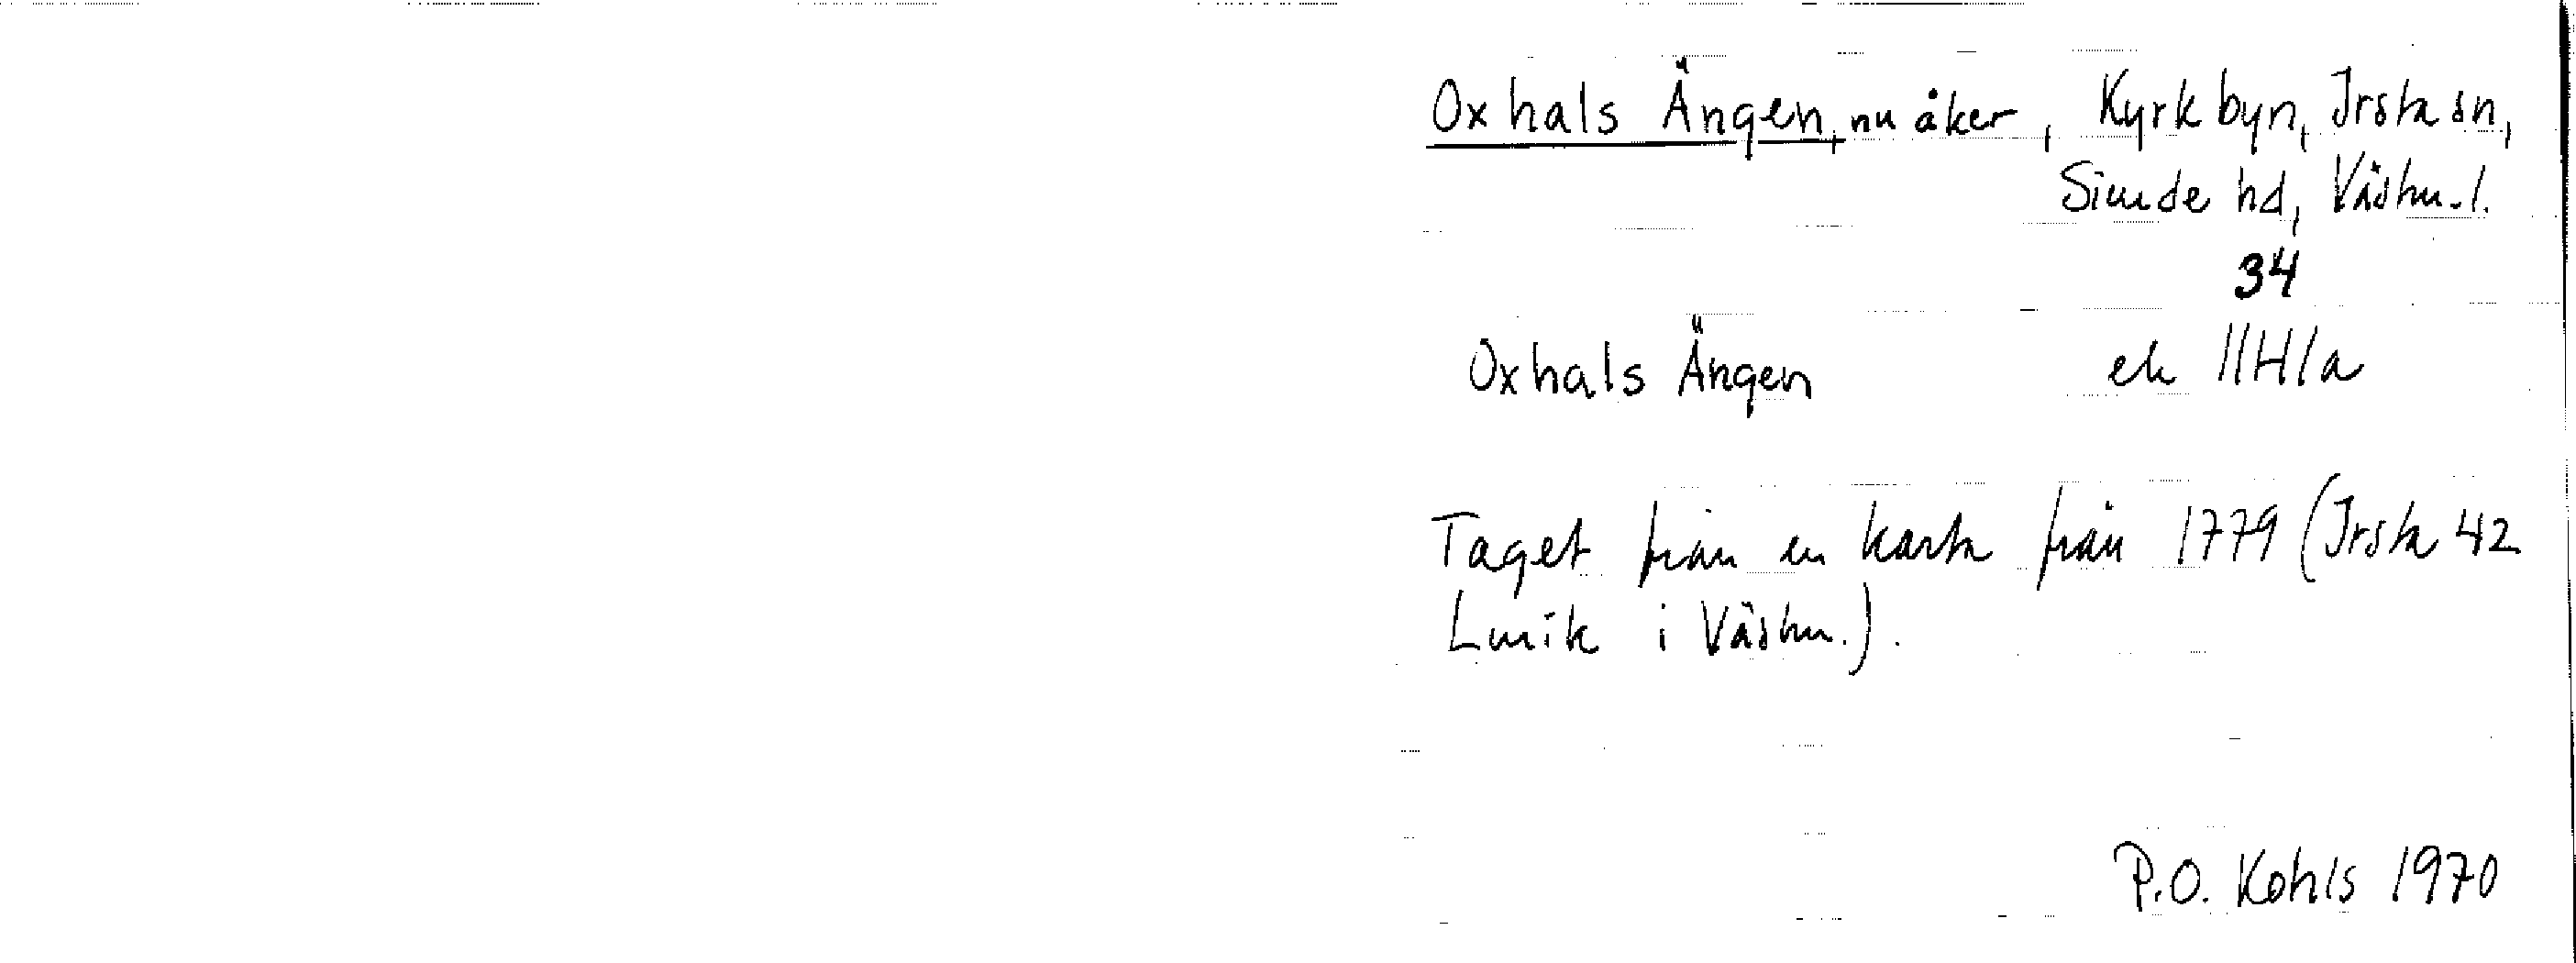 Oxhals Ängen, nu åker, Kyrkbyn, Irsta sn,
Siende hd, Västm. l.
34
Oxhals Ängen ek 11H1a
Taget från en karta från 1779 (Irsta 42
Lmík i Västm.).
P.O. Kohls 1970